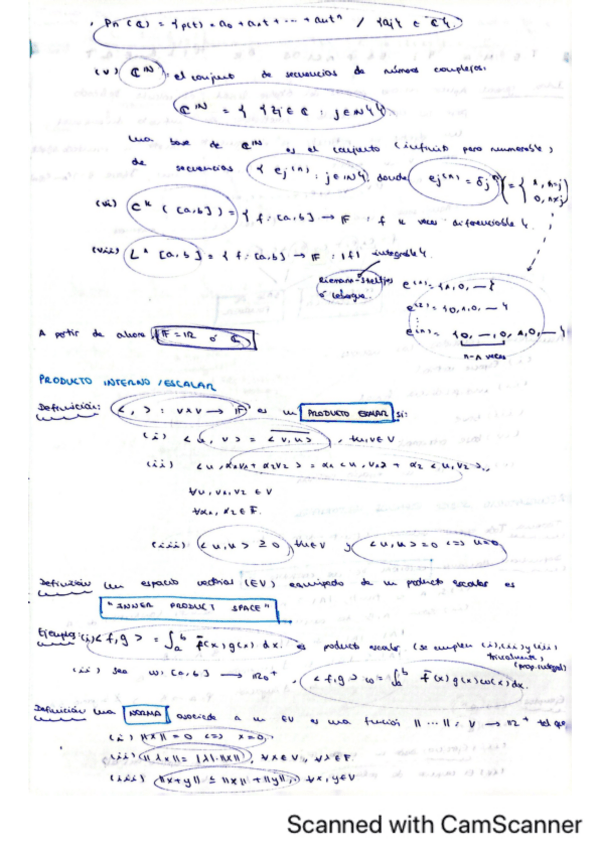 · Pn(ℂ) = {p(t) = a₀ + a₁t + ··· + aₙtⁿ / {aj} ∈ ℂ}.
(v) ℂ^ℕ: el conjunto de secuencias de números complejos.
ℂ^ℕ = { {zj ∈ ℂ : j ∈ ℕ} }
Una base de ℂ^ℕ es el conjunto (infinito pero numerable)
de secuencias { ej⁽ⁿ⁾ : j ∈ ℕ }, donde ej⁽ⁿ⁾ = δjⁿ ( = { 1, n=j
0, n≠j )
(vi) C^k ([a,b]) = { f: [a,b] → 𝔽 : f k veces diferenciable }.
(vii) L¹ [a,b] = { f: [a,b] → 𝔽 : |f| integrable }.
Riemann-Stieltjes
ó Lebesgue.
e⁽¹⁾ = {1,0, —}
e⁽²⁾ = {0,1,0, —}
⋮
e⁽ⁿ⁾ = {0, —, 0, 1, 0, —}
n-1 veces
A partir de ahora, 𝔽 = ℝ ó ℂ
PRODUCTO INTERNO/ESCALAR
Definición: < , > : V×V → 𝔽 es un PRODUCTO ESCALAR si:
(i) <u, v> = \overline{<v,u>}, ∀u,v∈V
(ii) <u, α₁v₁ + α₂v₂> = α₁<u,v₁> + α₂<u,v₂>,
∀u, v₁, v₂ ∈ V
∀α₁, α₂ ∈ 𝔽.
(iii) <u,u> ≥ 0, ∀u∈V y <u,u> = 0 <=> u=0
Definición Un espacio vectorial (EV) equipado de un producto escalar es
"INNER PRODUCT SPACE"
Ejemplo: (i) <f,g> = ∫ₐᵇ f̄(x) g(x) dx. es producto escalar (se cumplen (i),(ii) y (iii)
trivialmente,
(prop. integral)
(ii) sea w: [a,b] → ℝ₀⁺, <f,g>w = ∫ₐᵇ f̄(x) g(x) w(x) dx.
Definición Una NORMA asociada a un EV es una función ||···||: V → ℝ⁺ tal que
(i) ||x|| = 0 <=> x=0.
(ii) ||λx|| = |λ|·||x||, ∀x∈V, ∀λ∈𝔽.
(iii) ||x+y|| ≤ ||x|| + ||y||, ∀x,y∈V
Scanned with CamScanner